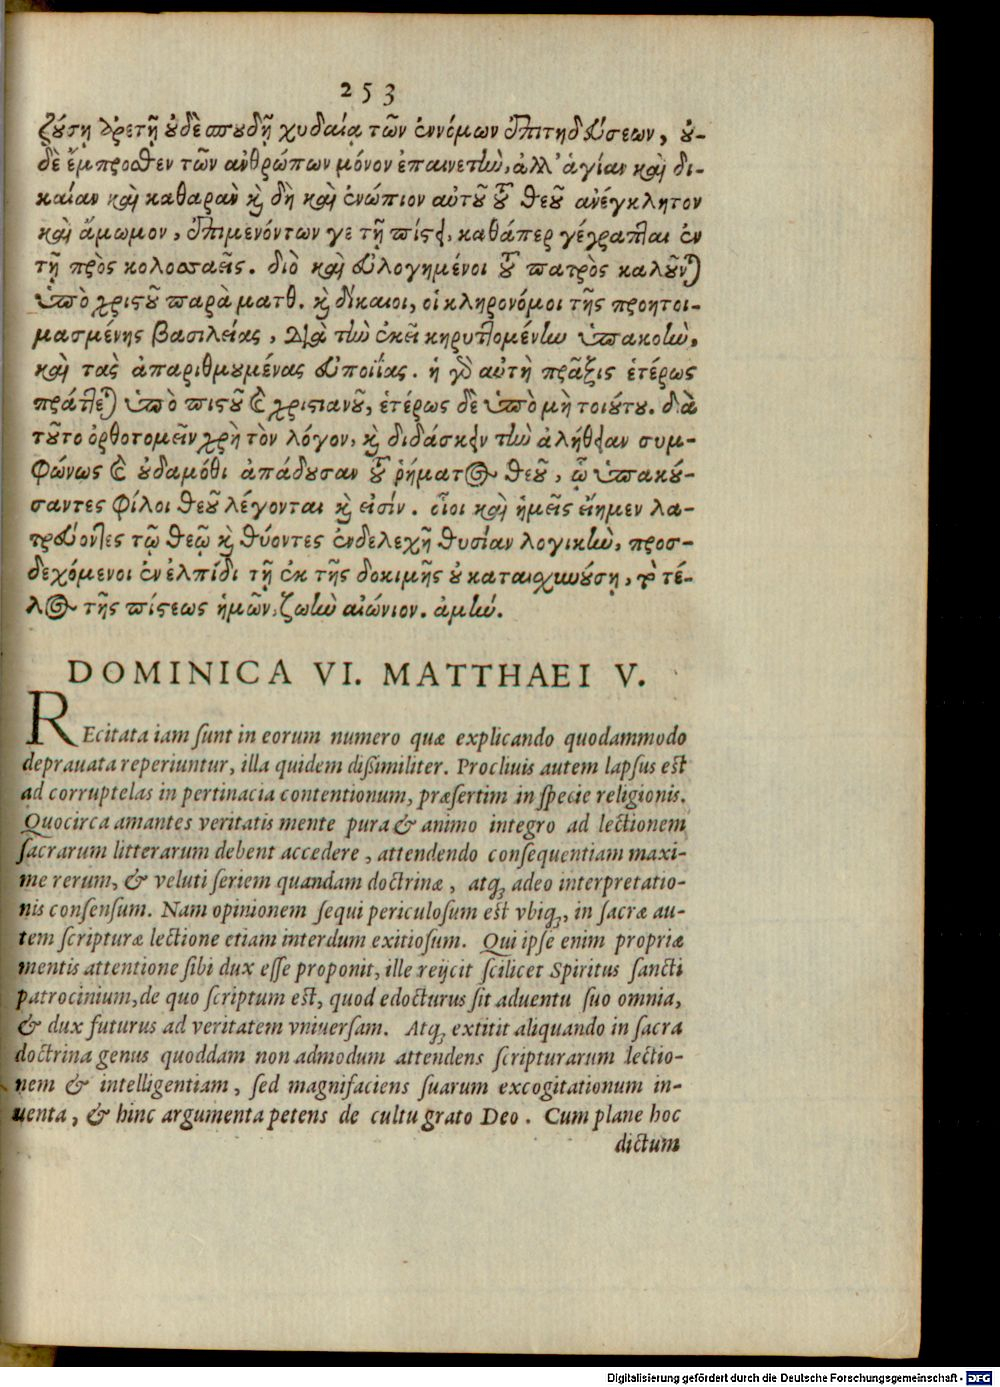 253
ζούσῃ ἀρετῇ οὐδὲ σπουδῇ χυδαίᾳ τῶν ἐννόμων ἐπιτηδεύσεων, οὐ-
δὲ ἔμπροσθεν τῶν ἀνθρώπων μόνον ἐπαινετὴν, ἀλλ' ἁγίαν καὶ δι-
καίαν καὶ καθαρὰν καὶ δὴ καὶ ἐνώπιον αὐτοῦ τοῦ θεοῦ ἀνέγκλητον
καὶ ἄμωμον, ἐπιμενόντων γε τῇ πίστει, καθάπερ γέγραπται ἐν
τῇ πρὸς κολοσσαεῖς. διὸ καὶ εὐλογημένοι τοῦ πατρὸς καλοῦνται
ὑπὸ χριστοῦ παρὰ ματθ. καὶ δίκαιοι, οἱ κληρονόμοι τῆς προητοι-
μασμένης βασιλείας, διὰ τὴν ἐκεῖ κηρυττομένην ὑπακοὴν,
καὶ τὰς ἀπαριθμουμένας εὐποιΐας. ἡ γὰρ αὐτὴ πρᾶξις ἑτέρως
πράττεται ὑπὸ πιστοῦ καὶ χριστιανοῦ, ἑτέρως δὲ ὑπὸ μὴ τοιούτου. διὰ
τοῦτο ὀρθοτομεῖν χρὴ τὸν λόγον, καὶ διδάσκειν τὴν ἀλήθειαν συμ-
φώνως καὶ οὐδαμόθι ἀπάδουσαν τοῦ ῥήματος θεοῦ, ᾧ ὑπακού-
σαντες φίλοι θεοῦ λέγονται καὶ εἰσίν. οἷοι καὶ ἡμεῖς εἴημεν λα-
τρεύοντες τῷ θεῷ καὶ θύοντες ἐνδελεχῆ θυσίαν λογικὴν, προσ-
δεχόμενοι ἐν ἐλπίδι τῇ ἐκ τῆς δοκιμῆς οὐ καταισχυνούσῃ, τὸ τέ-
λος τῆς πίστεως ἡμῶν, ζωὴν αἰώνιον. ἀμήν.
DOMINICA VI. MATTHAEI V.
REcitata iam ſunt in eorum numero quæ explicando quodammodo
deprauata reperiuntur, illa quidem diſsimiliter. Procliuis autem lapſus est
ad corruptelas in pertinacia contentionum, præſertim in ſpecie religionis.
Quocirca amantes veritatis mente pura & animo integro ad lectionem
ſacrarum litterarum debent accedere, attendendo conſequentiam maxi-
me rerum, & veluti ſeriem quandam doctrinæ, atq; adeo interpretatio-
nis conſenſum. Nam opinionem ſequi periculoſum est vbiq;, in ſacræ au-
tem ſcripturæ lectione etiam interdum exitioſum. Qui ipſe enim propriæ
mentis attentione ſibi dux eſſe proponit, ille reijcit ſcilicet Spiritus ſancti
patrocinium, de quo ſcriptum est, quod edocturus ſit aduentu ſuo omnia,
& dux futurus ad veritatem vniuerſam. Atq; extitit aliquando in ſacra
doctrina genus quoddam non admodum attendens ſcripturarum lectio-
nem & intelligentiam, ſed magnifaciens ſuarum excogitationum in-
uenta, & hinc argumenta petens de cultu grato Deo. Cum plane hoc
dictum
Digitalisierung gefördert durch die Deutsche Forschungsgemeinschaft - DFG